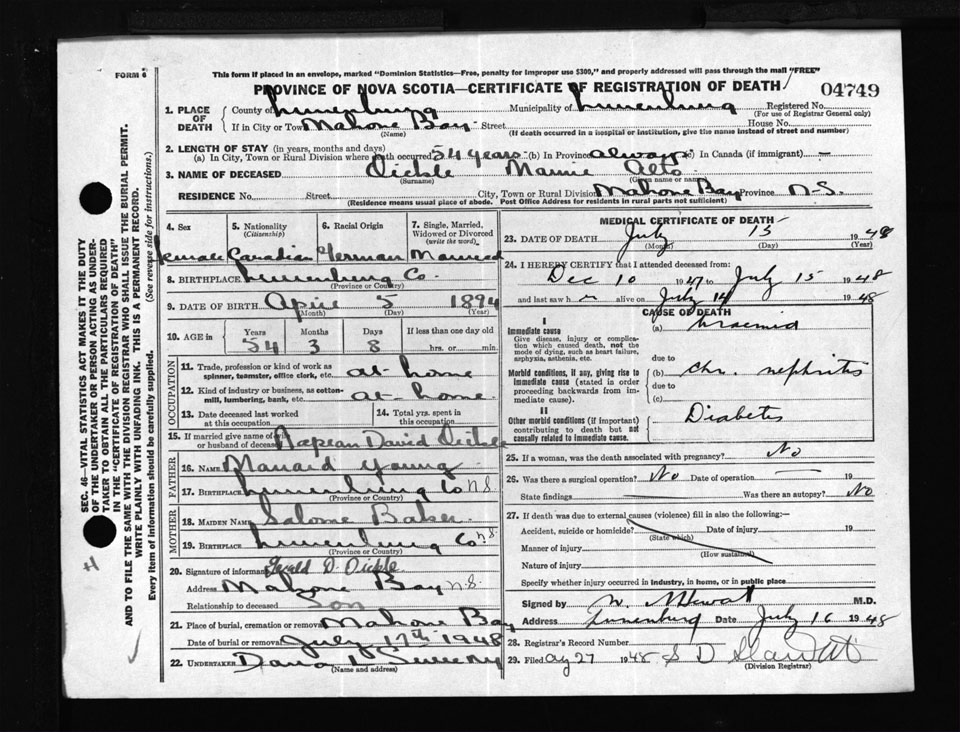 FORM 6
This form if placed in an envelope, marked "Dominion Statistics—Free, penalty for improper use $300," and properly addressed will pass through the mail "FREE"
PROVINCE OF NOVA SCOTIA—CERTIFICATE OF REGISTRATION OF DEATH
04749
1. PLACE OF DEATH
County of Lunenburg Municipality of Lunenburg Registered No.
(For use of Registrar General only)
If in City or Town Mahone Bay Street House No.
(Name) (If death occurred in a hospital or institution, give the name instead of street and number)
2. LENGTH OF STAY (in years, months and days)
(a) In City, Town or Rural Division where death occurred 54 years (b) In Province always (c) In Canada (if immigrant) —
3. NAME OF DECEASED Oickle Mannie Alto
(Surname) (Given name or names)
RESIDENCE No. Street City, Town or Rural Division Mahone Bay Province N.S.
(Residence means usual place of abode. Post Office Address for residents in rural parts not sufficient)
4. Sex 5. Nationality (Citizenship) 6. Racial Origin 7. Single, Married, Widowed or Divorced (write the word)
Female Canadian German Married
8. BIRTHPLACE Lunenburg Co.
(Province or Country)
9. DATE OF BIRTH April 5 1894
(Month) (Day) (Year)
10. AGE in Years Months Days If less than one day old
54 3 8 hrs. or min.
OCCUPATION
11. Trade, profession or kind of work as spinner, teamster, office clerk, etc. at home
12. Kind of industry or business, as cotton-mill, lumbering, bank, etc. at home
13. Date deceased last worked at this occupation 14. Total yrs. spent in this occupation
15. If married give name of wife or husband of deceased Napean David Oickle
FATHER
16. Name Manard Young
17. Birthplace Lunenburg Co N.S.
(Province or Country)
MOTHER
18. Maiden Name Salome Baker
19. Birthplace Lunenburg Co N.S.
(Province or Country)
20. Signature of informant Gerald D. Oickle
Address Mahone Bay N.S.
Relationship to deceased Son
21. Place of burial, cremation or removal Mahone Bay
Date of burial or removal July 17th 1948
22. UNDERTAKER Dana L Sweeny
(Name and address)
MEDICAL CERTIFICATE OF DEATH
23. DATE OF DEATH July 15 1948
(Month) (Day) (Year)
24. I HEREBY CERTIFY that I attended deceased from:
Dec 10 1947 to July 15 1948
and last saw h er alive on July 14 1948
CAUSE OF DEATH
I
Immediate cause
Give disease, injury or complication which caused death, not the mode of dying, such as heart failure, asphyxia, asthenia, etc.
(a) Uraemia
due to
Morbid conditions, if any, giving rise to immediate cause (stated in order proceeding backwards from immediate cause)
(b) Chr. nephritis
due to
(c)
II
Other morbid conditions (if important) contributing to death but not causally related to immediate cause.
Diabetes
25. If a woman, was the death associated with pregnancy? No
26. Was there a surgical operation? No Date of operation — 19
State findings Was there an autopsy? No
27. If death was due to external causes (violence) fill in also the following:—
Accident, suicide or homicide? Date of injury 19
(State which)
Manner of injury
(How sustained)
Nature of injury
Specify whether injury occurred in industry, in home, or in public place
Signed by M.D.
Address Lunenburg Date July 16 1948
28. Registrar's Record Number
29. Filed Aug 27 1948 S D
(Division Registrar)
SEC. 46—VITAL STATISTICS ACT MAKES IT THE DUTY
OF THE UNDERTAKER OR PERSON ACTING AS UNDER-
TAKER TO OBTAIN ALL THE PARTICULARS REQUIRED
IN THE "CERTIFICATE OF REGISTRATION OF DEATH"
AND TO FILE THE SAME WITH THE DIVISION REGISTRAR WHO SHALL ISSUE THE BURIAL PERMIT.
WRITE PLAINLY WITH UNFADING INK. THIS IS A PERMANENT RECORD.
Every item of information should be carefully supplied. (See reverse side for instructions.)